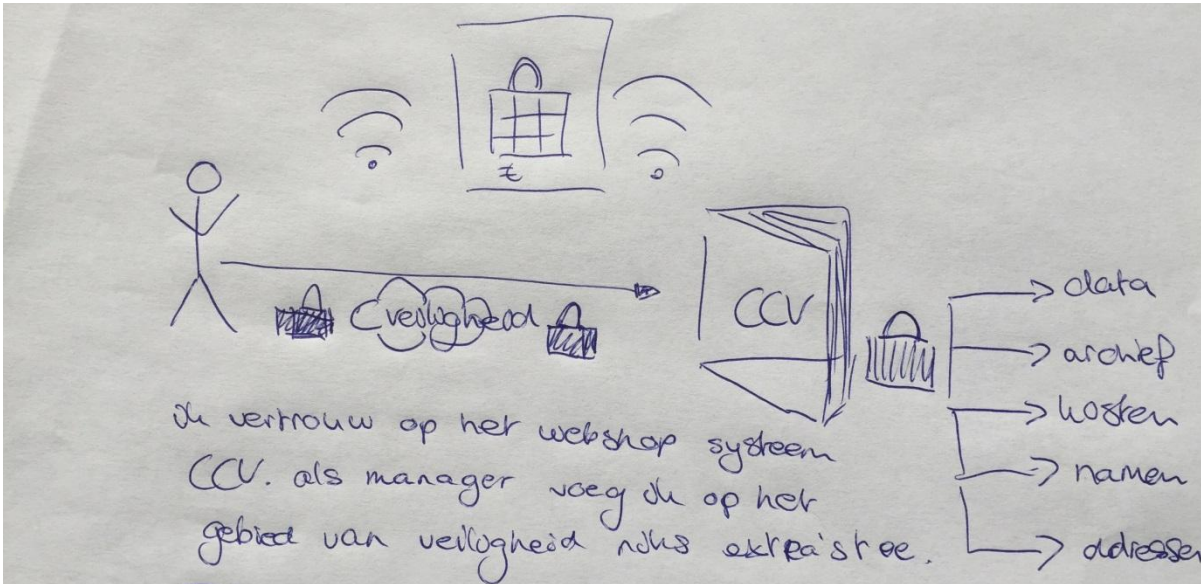 €
veiligheid
CCV
data
archief
kosten
namen
adressen
ik vertrouw op het webshop systeem
CCV. als manager voeg ik op het
gebied van veiligheid niks extra's toe.